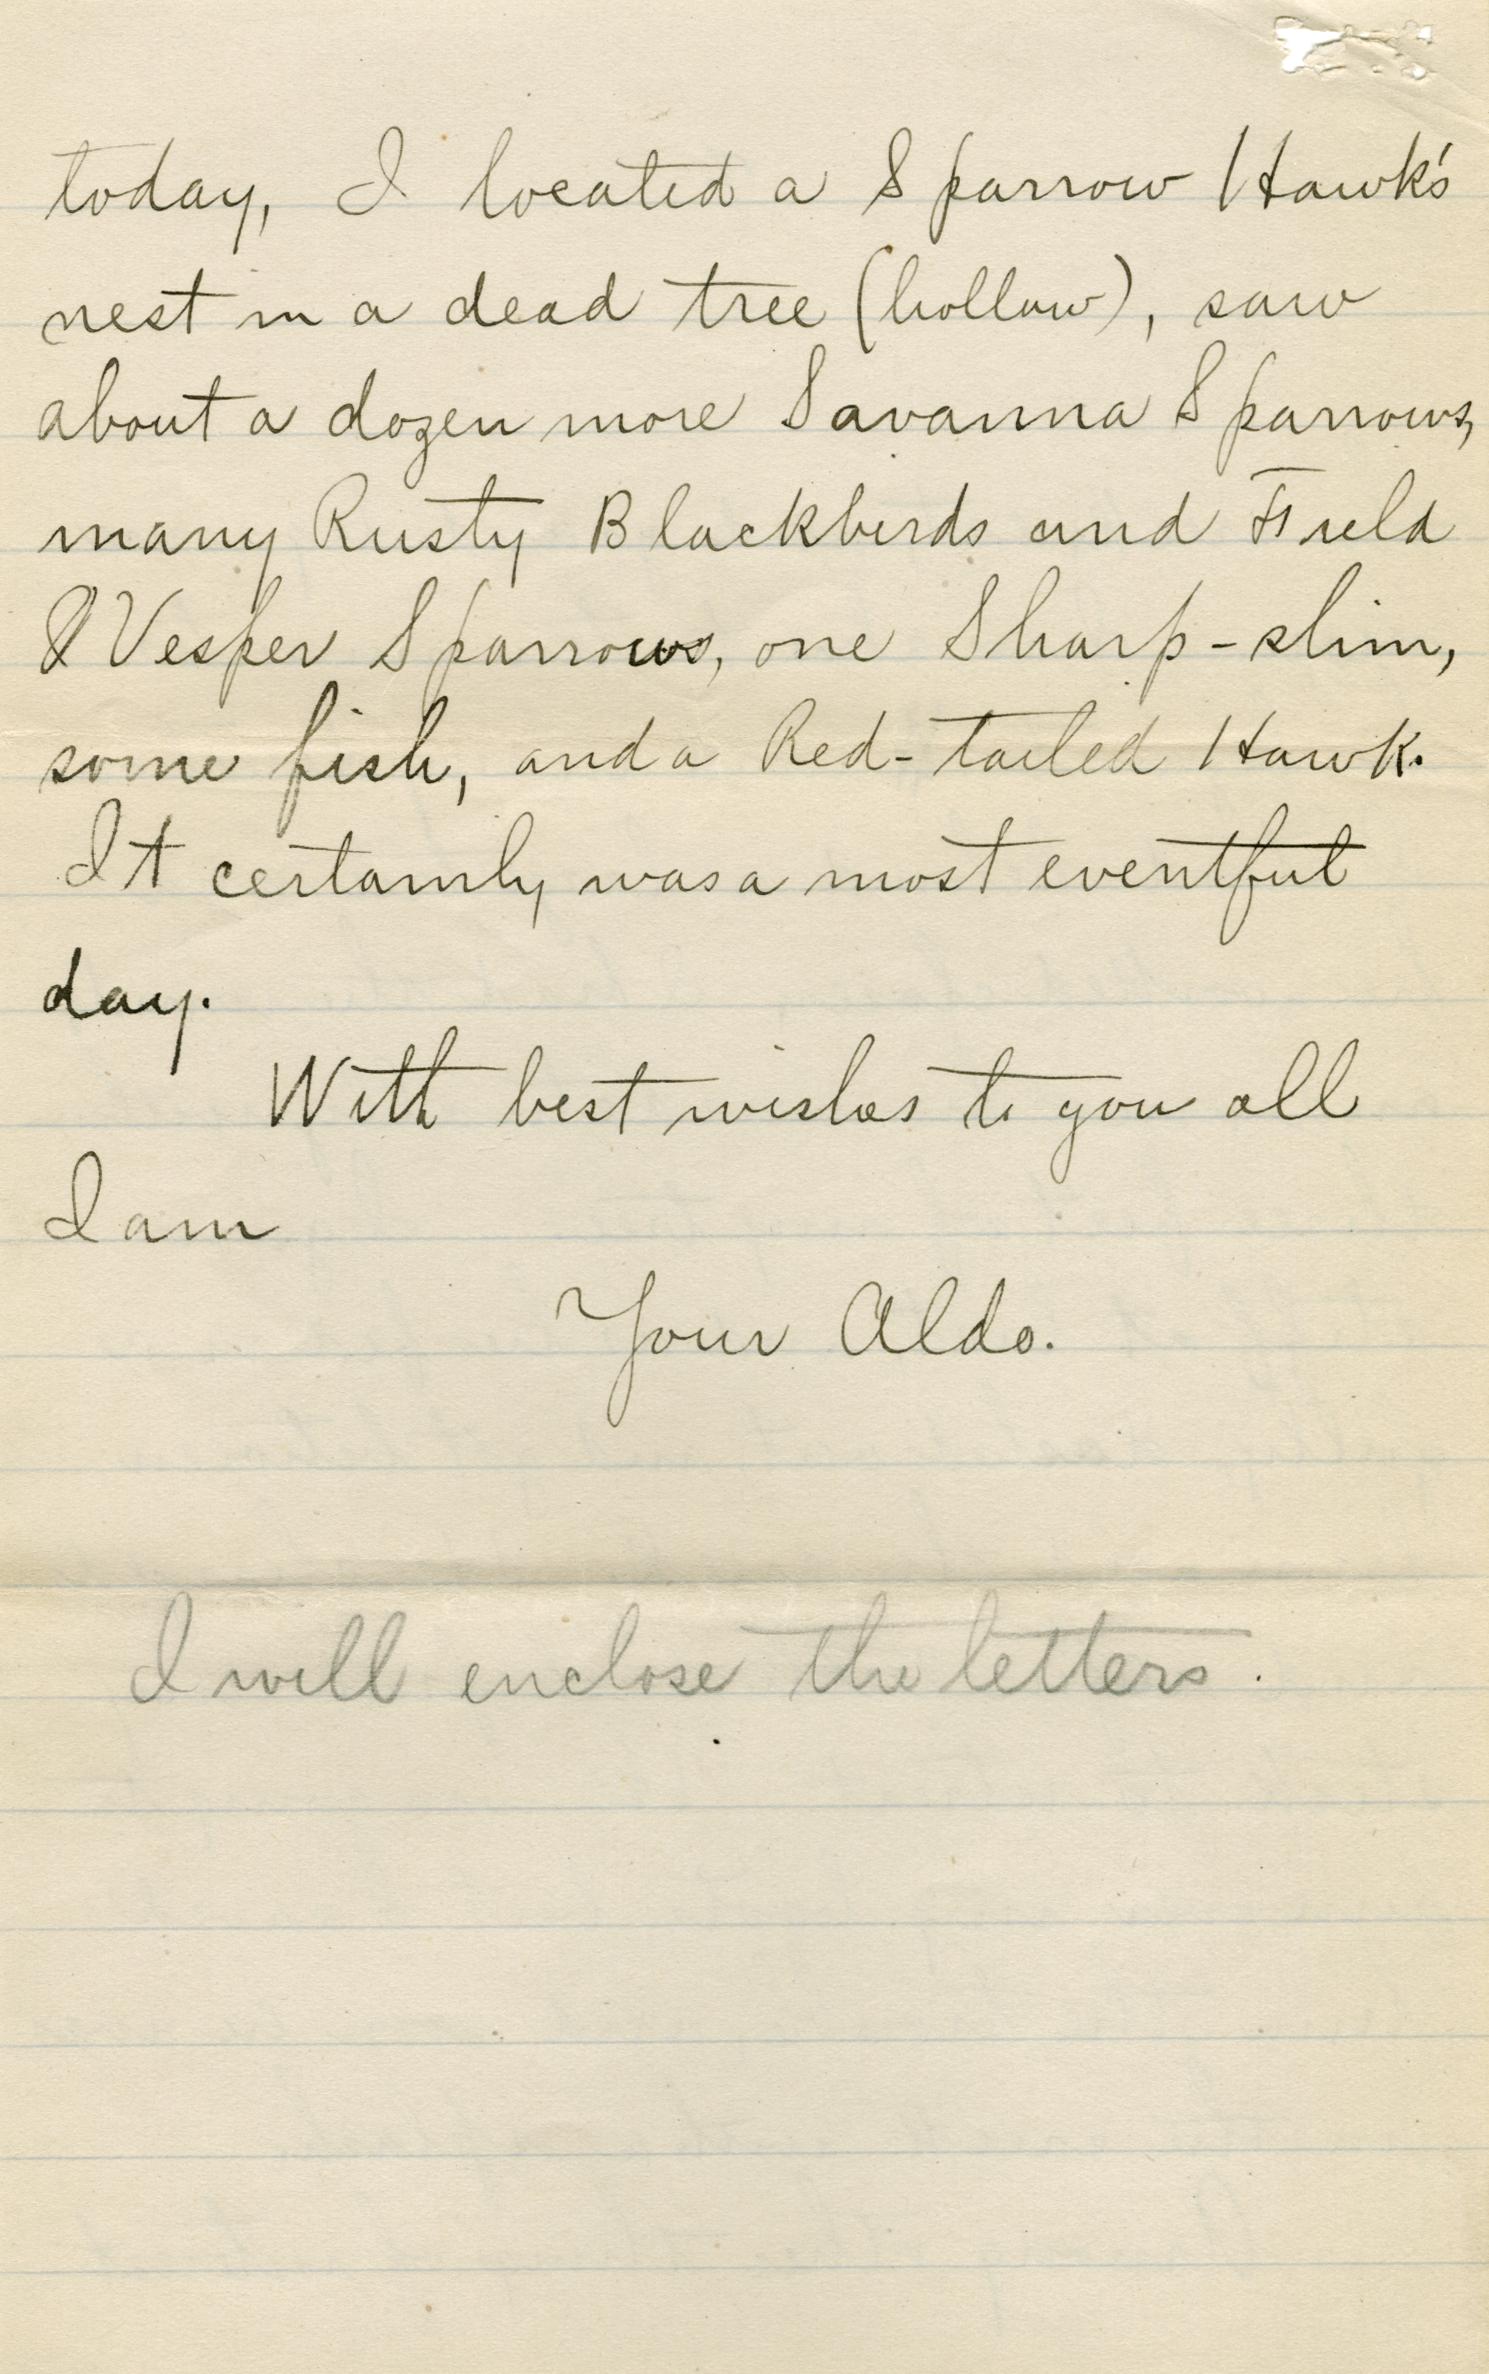 today, I located a Sparrow Hawk's
nest in a dead tree (hollow), saw
about a dozen more Savanna Sparrows,
many Rusty Blackbirds and Field
& Vesper Sparrows, one Sharp-shin,
some fish, and a Red-tailed Hawk.
It certainly was a most eventful
day.
With best wishes to you all
I am
Your Aldo.
I will enclose the letters.